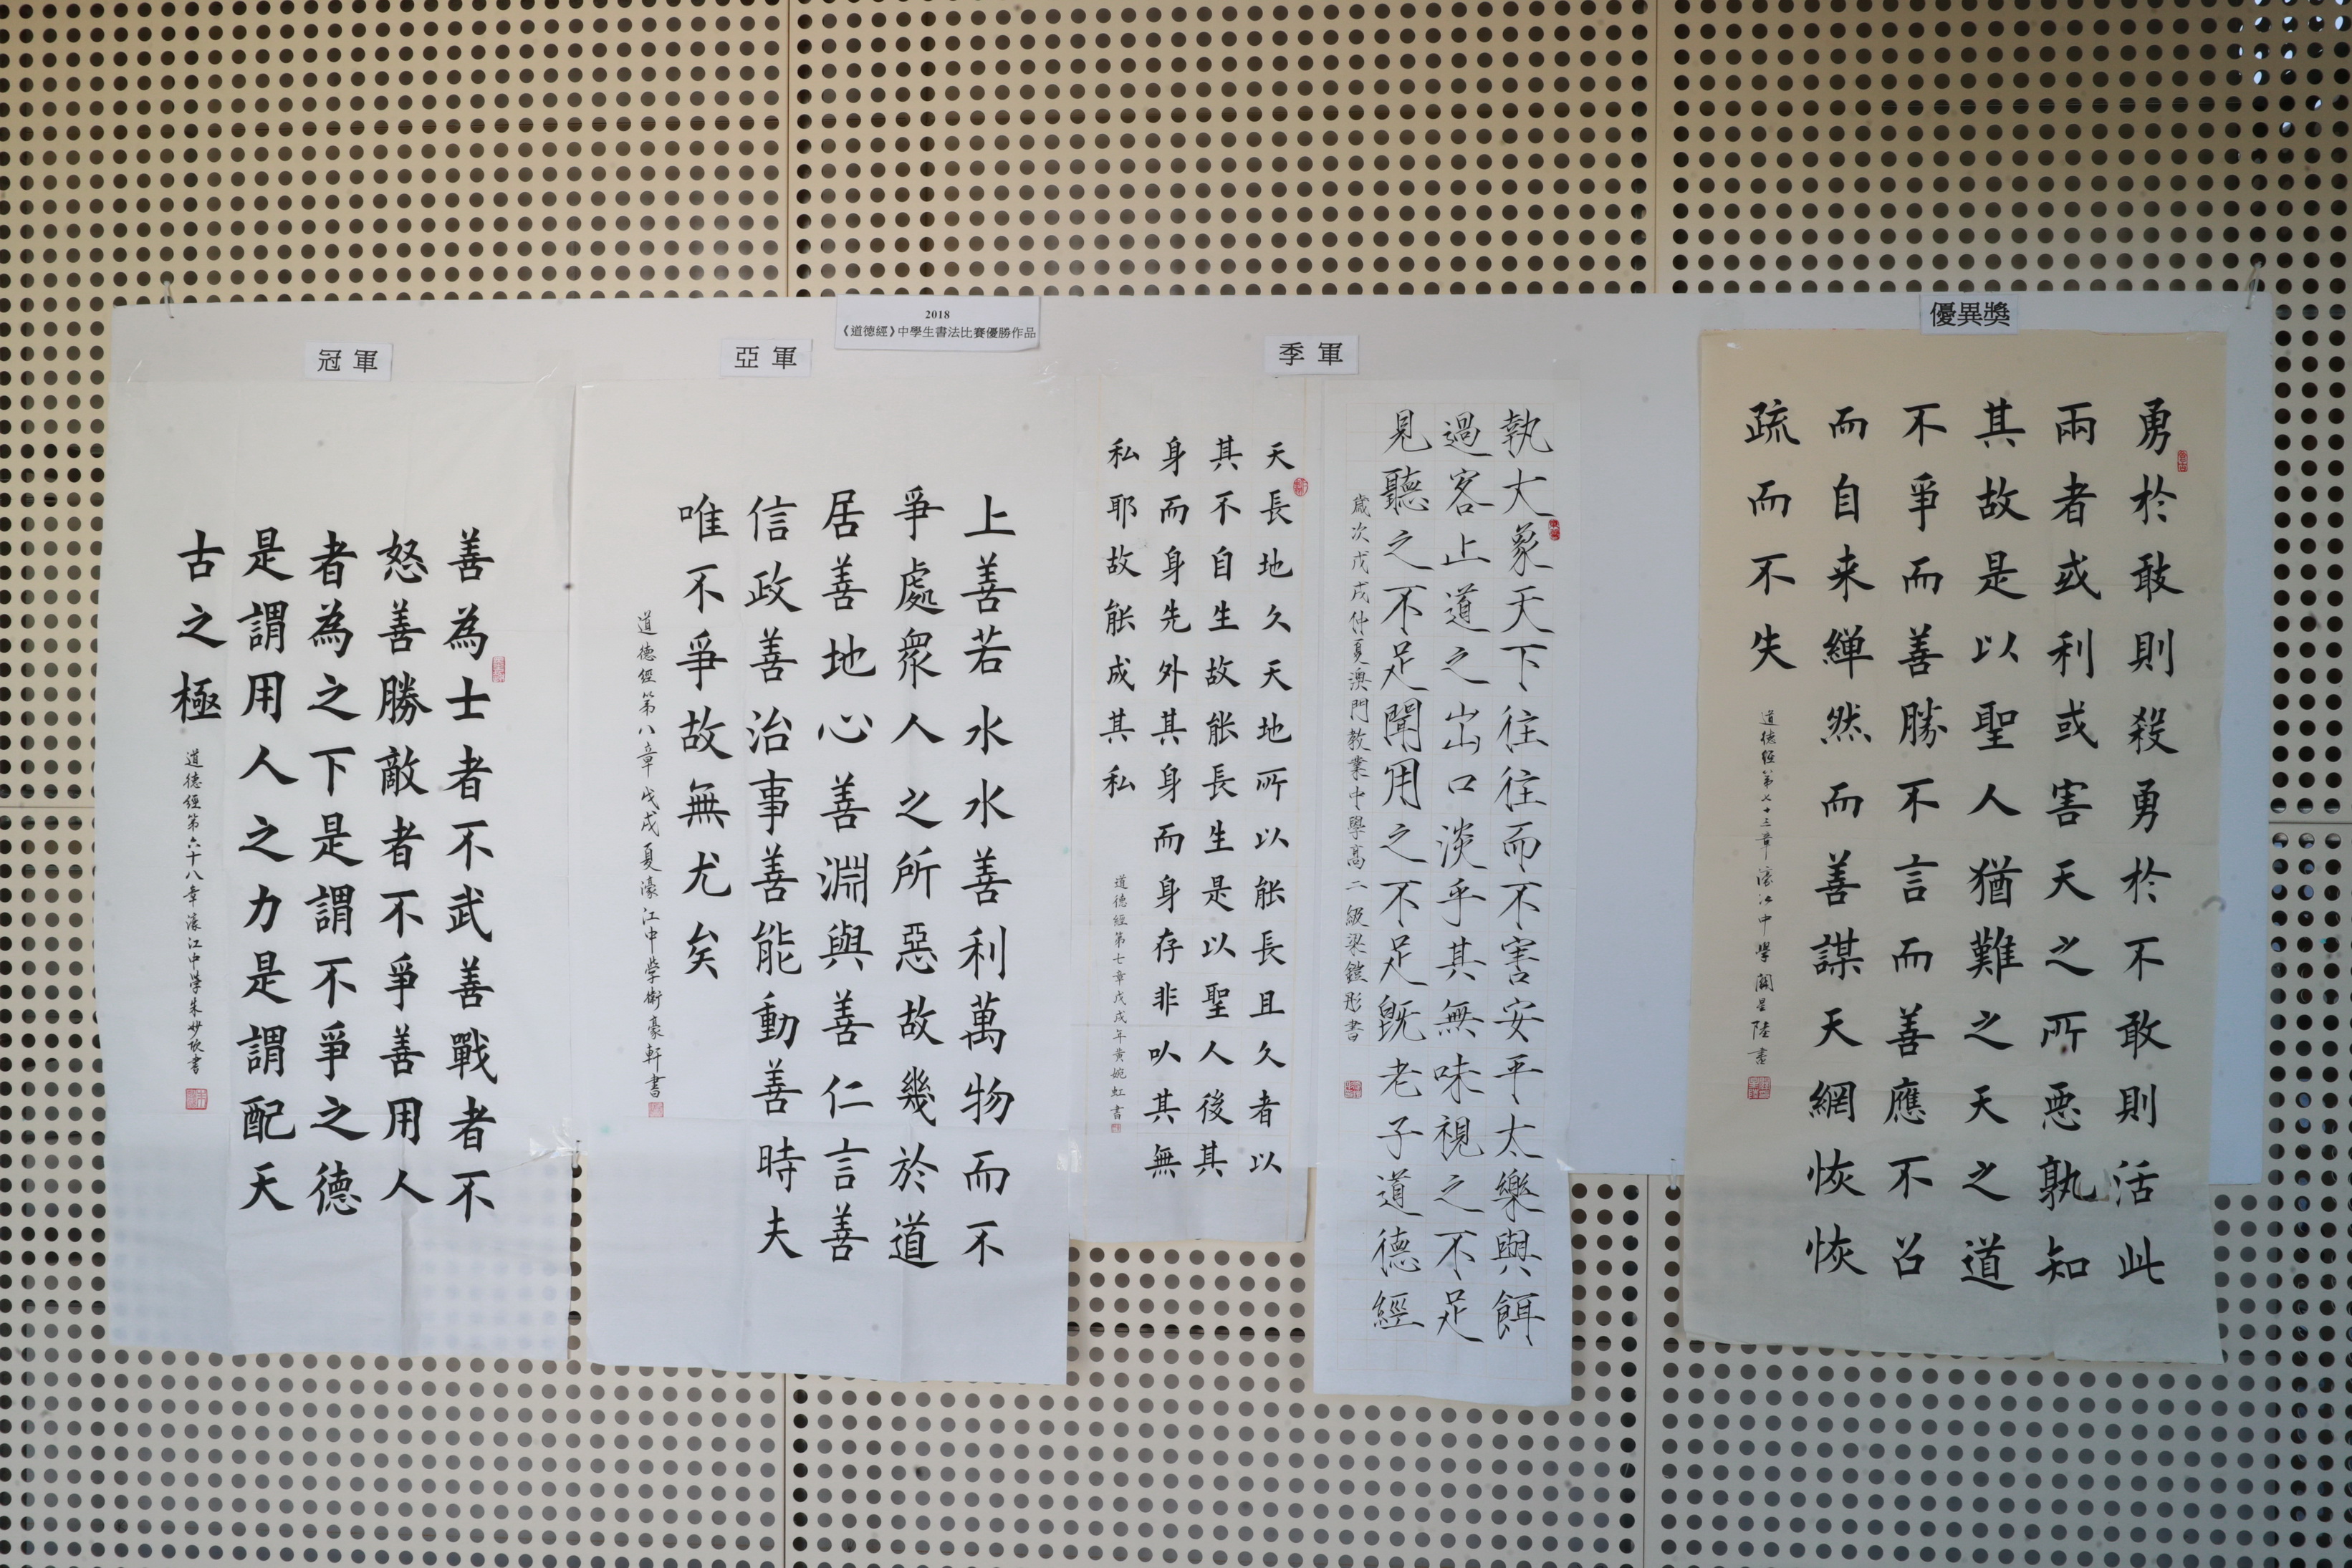 2018
《道德經》中學生書法比賽優勝作品
冠軍
善為士者不武善戰者不
怒善勝敵者不爭善用人
者為之下是謂不爭之德
是謂用人之力是謂配天
古之極
道德經第六十八章濠江中學朱妙欣書
亞軍
上善若水水善利萬物而不
爭處眾人之所惡故幾於道
居善地心善淵與善仁言善
信政善治事善能動善時夫
唯不爭故無尤矣
道德經第八章戊戌夏濠江中學衛豪軒書
季軍
天長地久天地所以能長且久者以
其不自生故能長生是以聖人後其
身而身先外其身而身存非以其無
私耶故能成其私
道德經第七章戊戌年黃婉虹書
執大象天下往往而不害安乎太樂與餌
過客止道之出口淡乎其無味視之不足
見聽之不足聞用之不足既老子道德經
歲次戊戌仲夏澳門教業中學高二級梁鎧彤書
優異獎
勇於敢則殺勇於不敢則活此
兩者或利或害天之所惡孰知
其故是以聖人猶難之天之道
不爭而善勝不言而善應不召
而自来繟然而善謀天網恢恢
疏而不失
道德經第七十三章濠江中學關星陸書